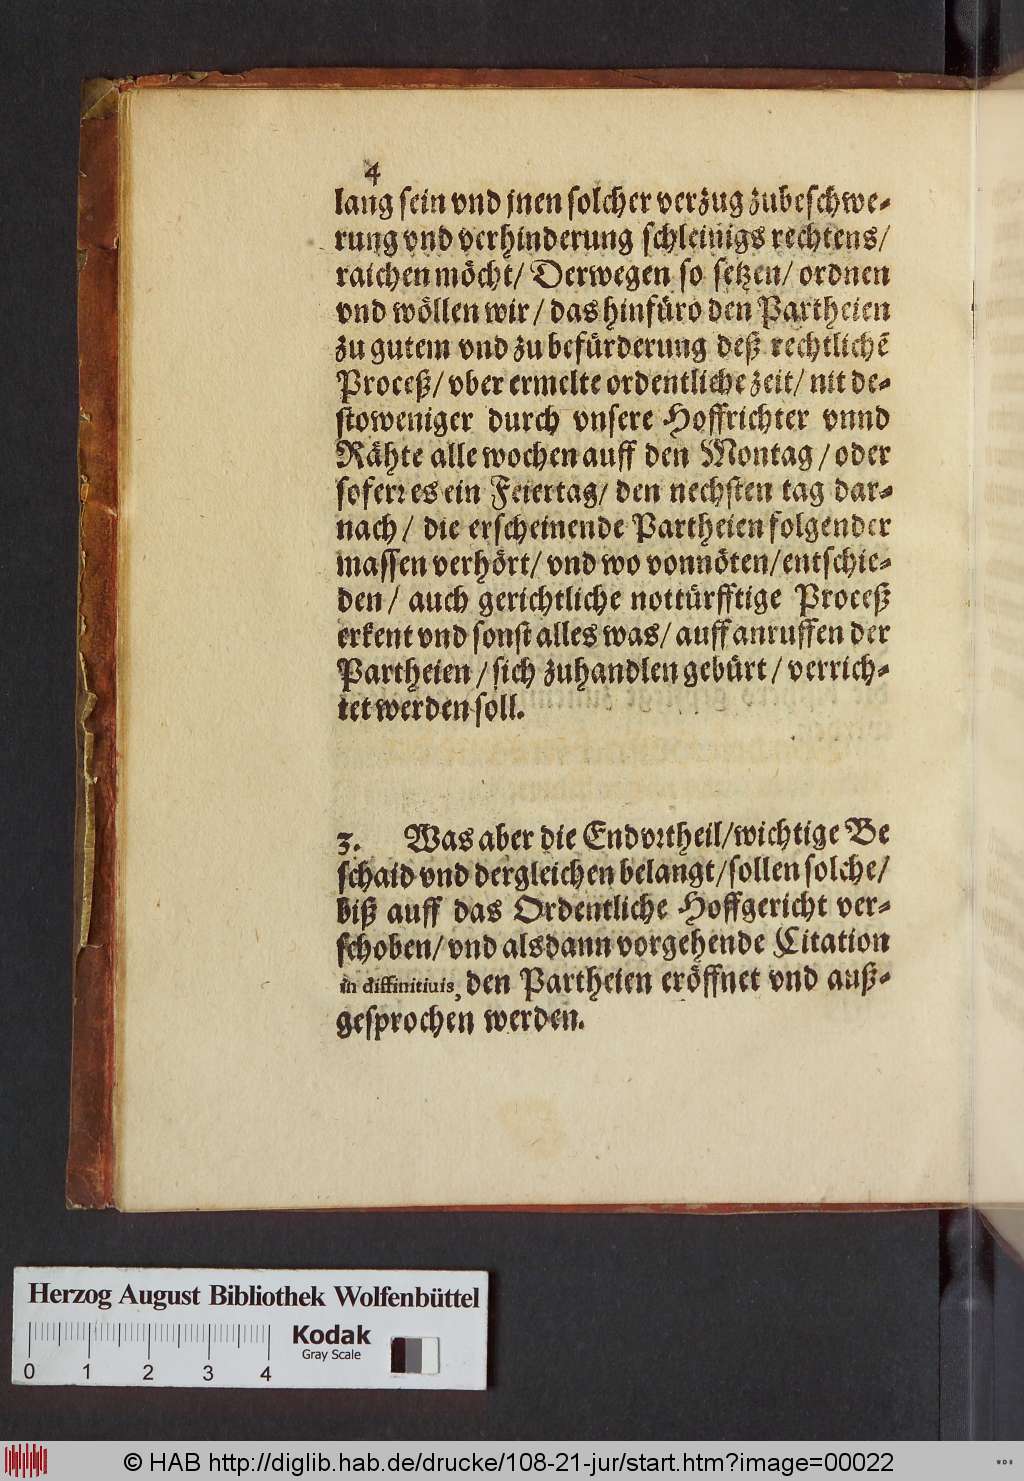 4
lang sein vnd jnen solcher verzug zubeschwe-
rung vnd verhinderung schleinigs rechtens/
raichen möcht/ Derwegen so setzen/ ordnen
vnd wöllen wir/ das hinfüro den Partheien
zu gutem vnd zu befürderung deß rechtlichē
Proceß/ vber ermelte ordentliche zeit/ nit de-
stoweniger durch vnsere Hoffrichter vnnd
Rähte alle wochen auff den Montag/ oder
soferr es ein Feiertag/ den nechsten tag dar-
nach/ die erscheinende Partheien folgender
massen verhört/ vnd wo vonnöten/ entschie-
den/ auch gerichtliche nottürfftige Proceß
erkent vnd sonst alles was/ auff anruffen der
Partheien/ sich zuhandlen gebürt/ verrich-
tet werden soll.
3. Was aber die Endvrtheil/ wichtige Be
schaid vnd dergleichen belangt/ sollen solche/
biß auff das Ordentliche Hoffgericht ver-
schoben/ vnd alsdann vorgehende Citation
in diffinitiuis, den Partheien eröffnet vnd auß-
gesprochen werden.
Herzog August Bibliothek Wolfenbüttel
Kodak
Gray Scale
0 1 2 3 4
© HAB http://diglib.hab.de/drucke/108-21-jur/start.htm?image=00022